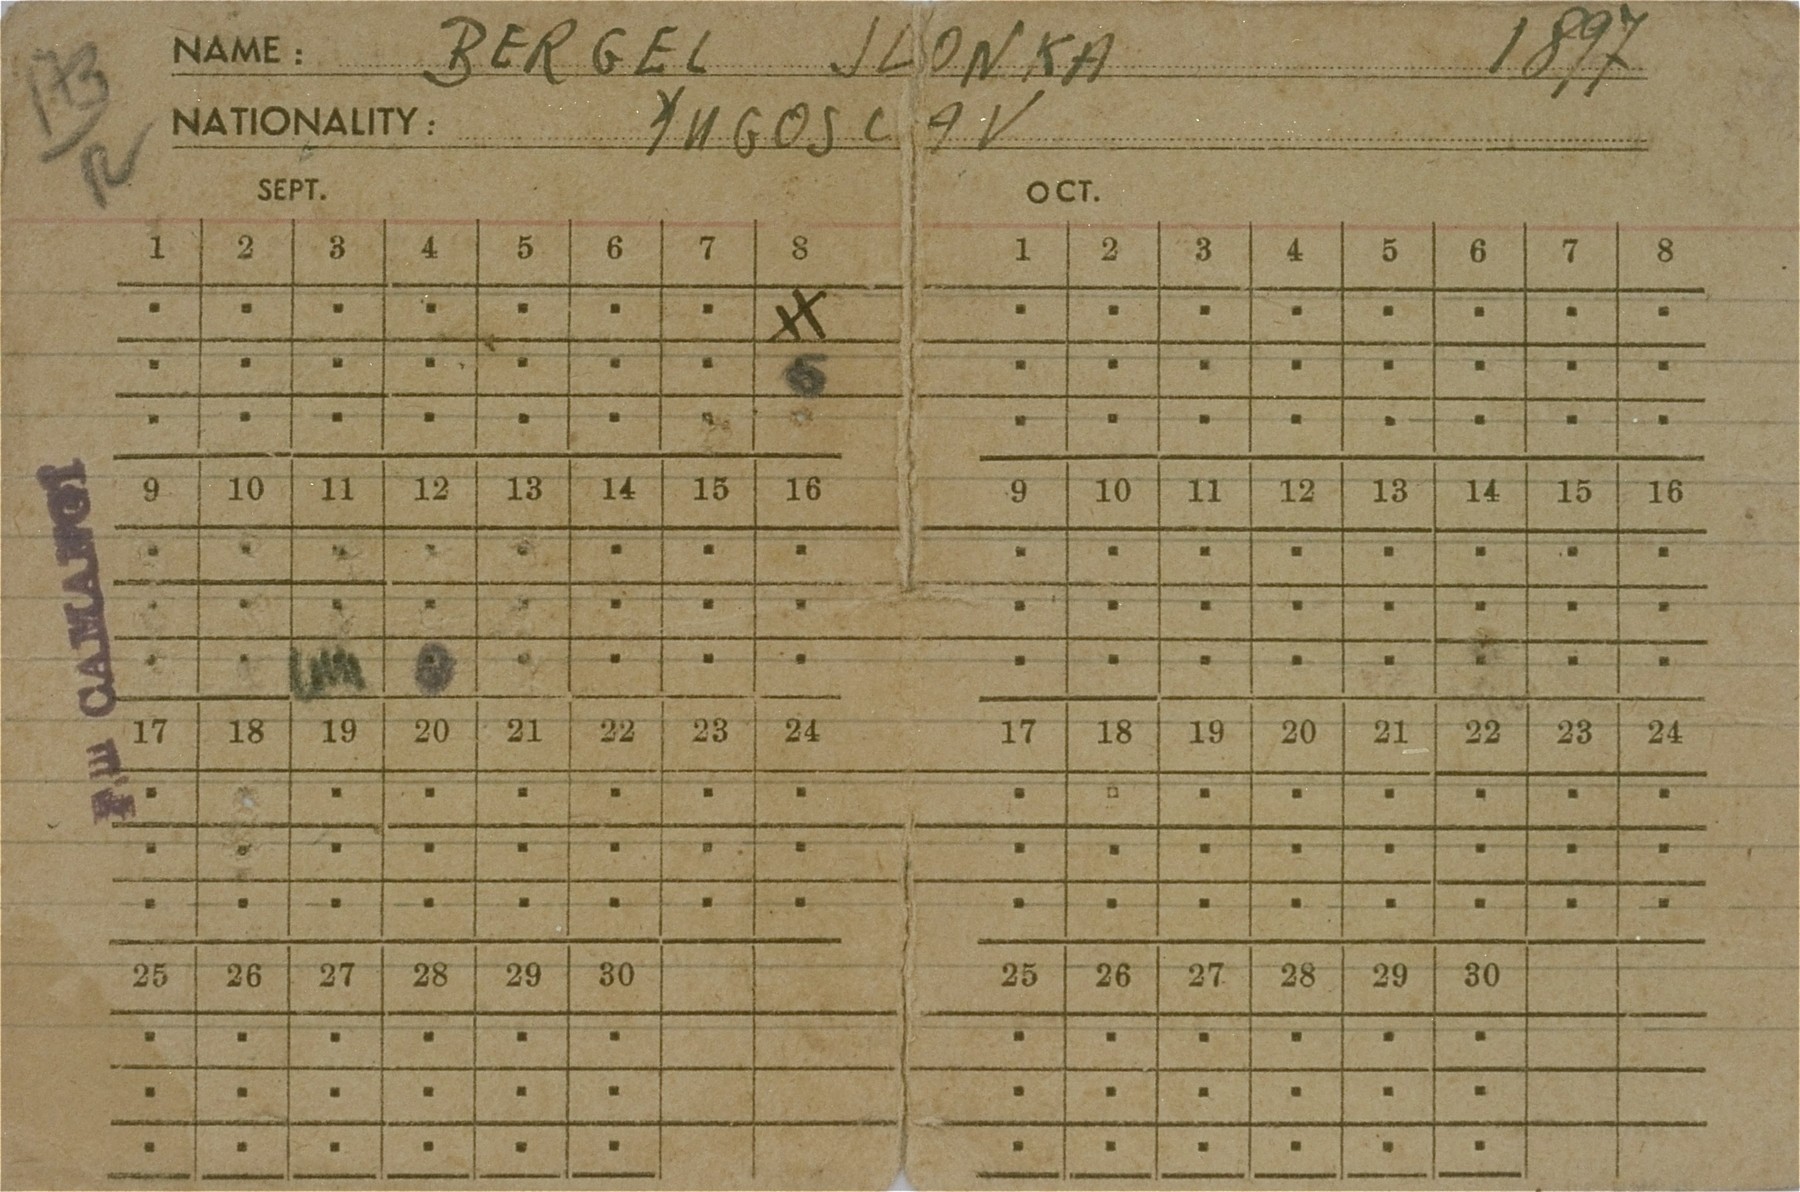 NAME: BERGEL JLONKA 1897
NATIONALITY: YUGOSLAV
SEPT. OCT.
1 2 3 4 5 6 7 8 1 2 3 4 5 6 7 8
9 10 11 12 13 14 15 16 9 10 11 12 13 14 15 16
17 18 19 20 21 22 23 24 17 18 19 20 21 22 23 24
25 26 27 28 29 30 25 26 27 28 29 30